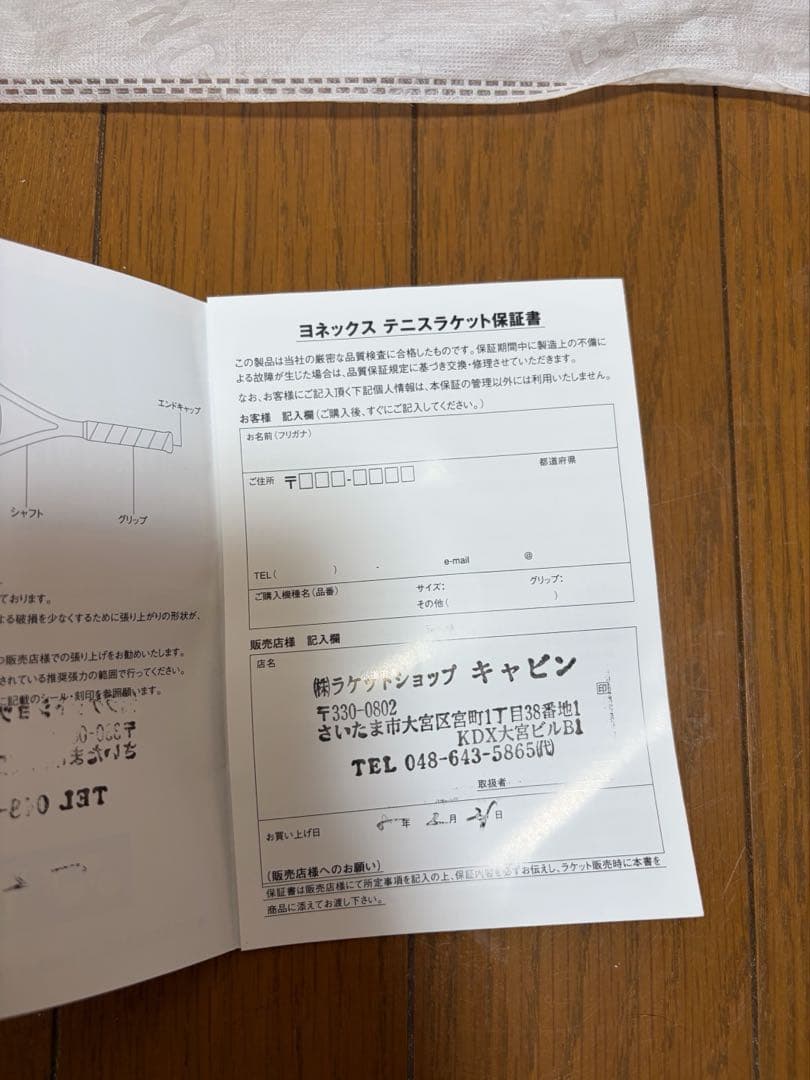 エンドキャップ
シャフト
グリップ
ております。
よる破損を少なくするために張り上がりの形状が、
販売店様での張り上げをお勧めいたします。
されている推奨張力の範囲で行ってください。
に記載のシール・刻印を参照願います。
ヨネックス テニスラケット保証書
この製品は当社の厳密な品質検査に合格したものです。保証期間中に製造上の不備に
よる故障が生じた場合は、品質保証規定に基づき交換・修理させていただきます。
なお、お客様にご記入頂く下記個人情報は、本保証の管理以外には利用いたしません。
お客様 記入欄(ご購入後、すぐにご記入してください。)
お名前(フリガナ)
ご住所 〒□□□-□□□□ 都道府県
TEL( ) - e-mail @
ご購入機種名(品番) サイズ: グリップ:
その他( )
販売店様 記入欄
店名
㈱ラケットショップ キャビン
〒330-0802
さいたま市大宮区宮町1丁目38番地1
KDX大宮ビルB1
印
TEL 048-643-5865㈹
取扱者
お買い上げ日 年 月 日
(販売店様へのお願い)
保証書は販売店様にて所定事項を記入の上、保証内容を必ずお伝えし、ラケット販売時に本書を
商品に添えてお渡し下さい。